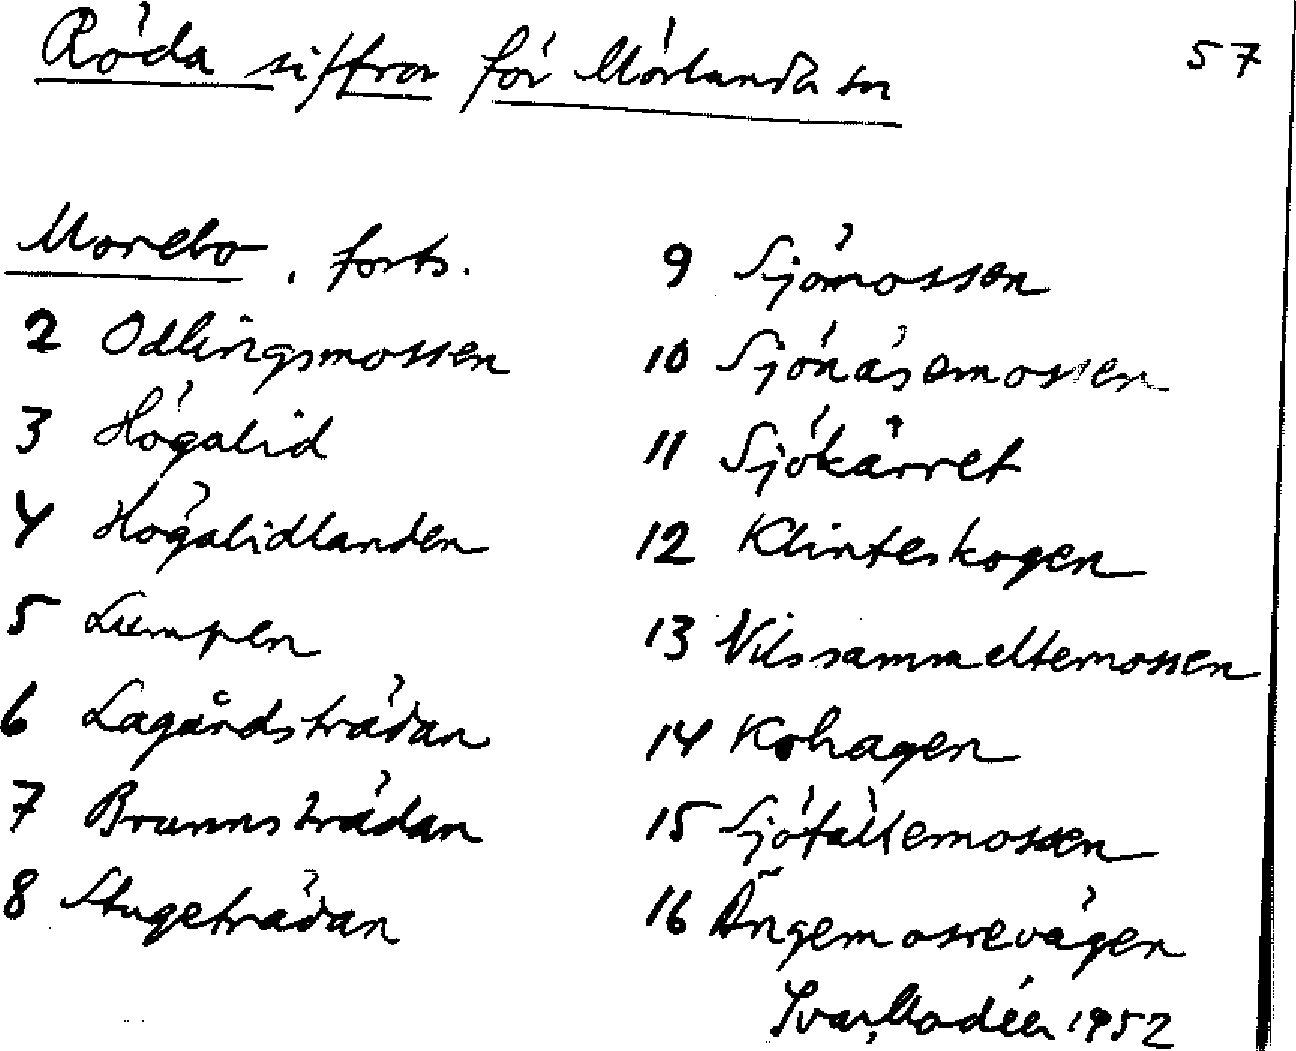 Röda siffror för Mörlanda sn
57
Morebo, forts.
2 Odlingsmossen
3 Högalid
4 Högalidlanden
5 Lumpen
6 Lagårdsträdan
7 Brunnsträdan
8 Stugeträdan
9 Sjömossen
10 Sjönäsemossen
11 Sjökärret
12 Klinteskogen
13 Nilssammeltemossen
14 Kohagen
15 Sjöfältemossen
16 Ängemossevägen
Ivar Modéer 1952